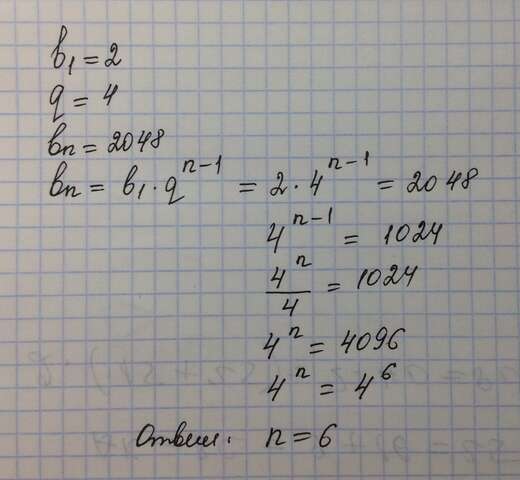 b₁ = 2
q = 4
bₙ = 2048
bₙ = b₁ · qⁿ⁻¹ = 2 · 4ⁿ⁻¹ = 2048
4ⁿ⁻¹ = 1024
4ⁿ/4 = 1024
4ⁿ = 4096
4ⁿ = 4⁶
Ответ: n = 6